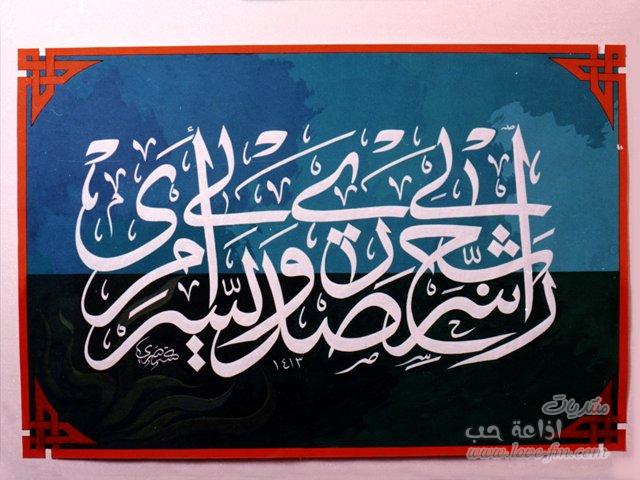 رب اشرح لي صدري ويسر لي أمري
١٤١٣
منتديات
اذاعة حب
www.love-fm.com